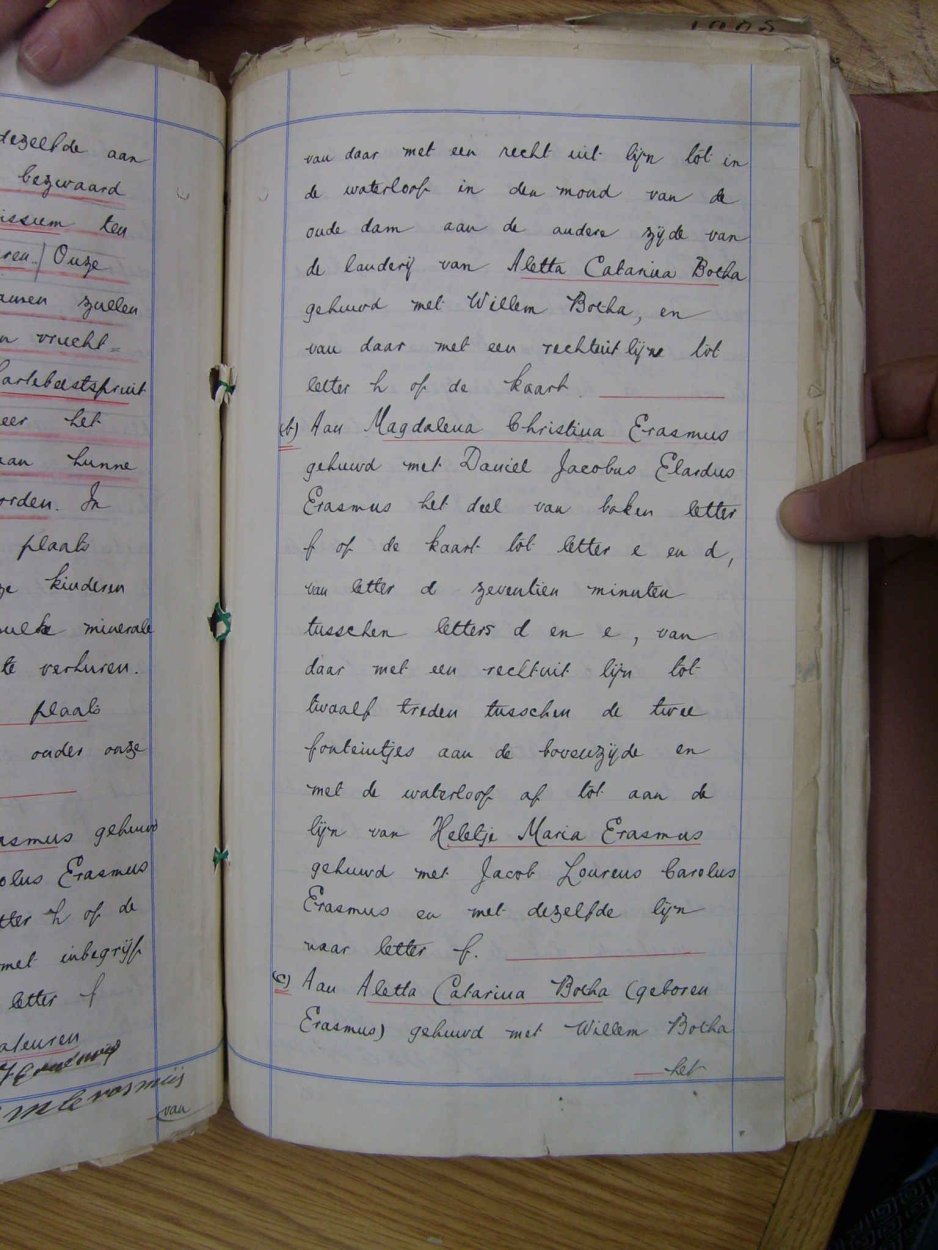 dezelfde aan
bezwaard
issum ten
ren./ Onze
amen zuelen
n vrucht=
artebeestspruit
eer het
aan hunne
orden. In
plaats
ze kinderen
minerale
te verhuren.
plaats
onder onze
asmus gehuwd
olus Erasmus
tter h of de
met inbegrijp
letter f
ateuren
van
van daar met een recht uit lijn tot in
de waterloop in den mond van de
oude dam aan de andere zijde van
de landerij van Aletta Catarina Botha
gehuwd met Willem Botha, en
van daar met een rechtuit lijne tot
letter h op de kaart.
(b) Aan Magdalena Christina Erasmus
gehuwd met Daniel Jacobus Elardus
Erasmus het deel van baken letter
f op de kaart tot letter e en d,
van letter d zeventien minuten
tusschen letters d en e, van
daar met een rechtuit lijn tot
twaalf treden tusschen de twee
fonteintjes aan de bovenzijde en
met de waterloop af tot aan de
lijn van Heletje Maria Erasmus
gehuwd met Jacob Lourens Carolus
Erasmus en met dezelfde lijn
naar letter f.
(c) Aan Aletta Catarina Botha (geboren
Erasmus) gehuwd met Willem Botha
het